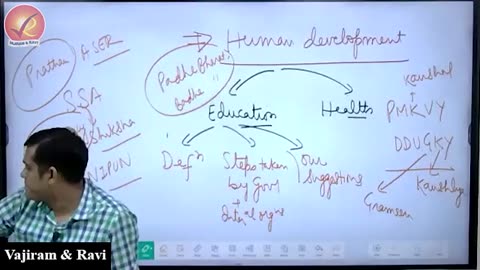 Vajiram & Ravi
Pratham
ASER
SSA
Shiksha
NIPUN
Padhe Bharat
Badhe
"
⇒ Human development
Education
Health
Defⁿ
Steps taken
by Govt
+
our
suggestions
Kaushal
PMKVY
DDUGKY
Grameen
Kaushlya
Vajiram & Ravi